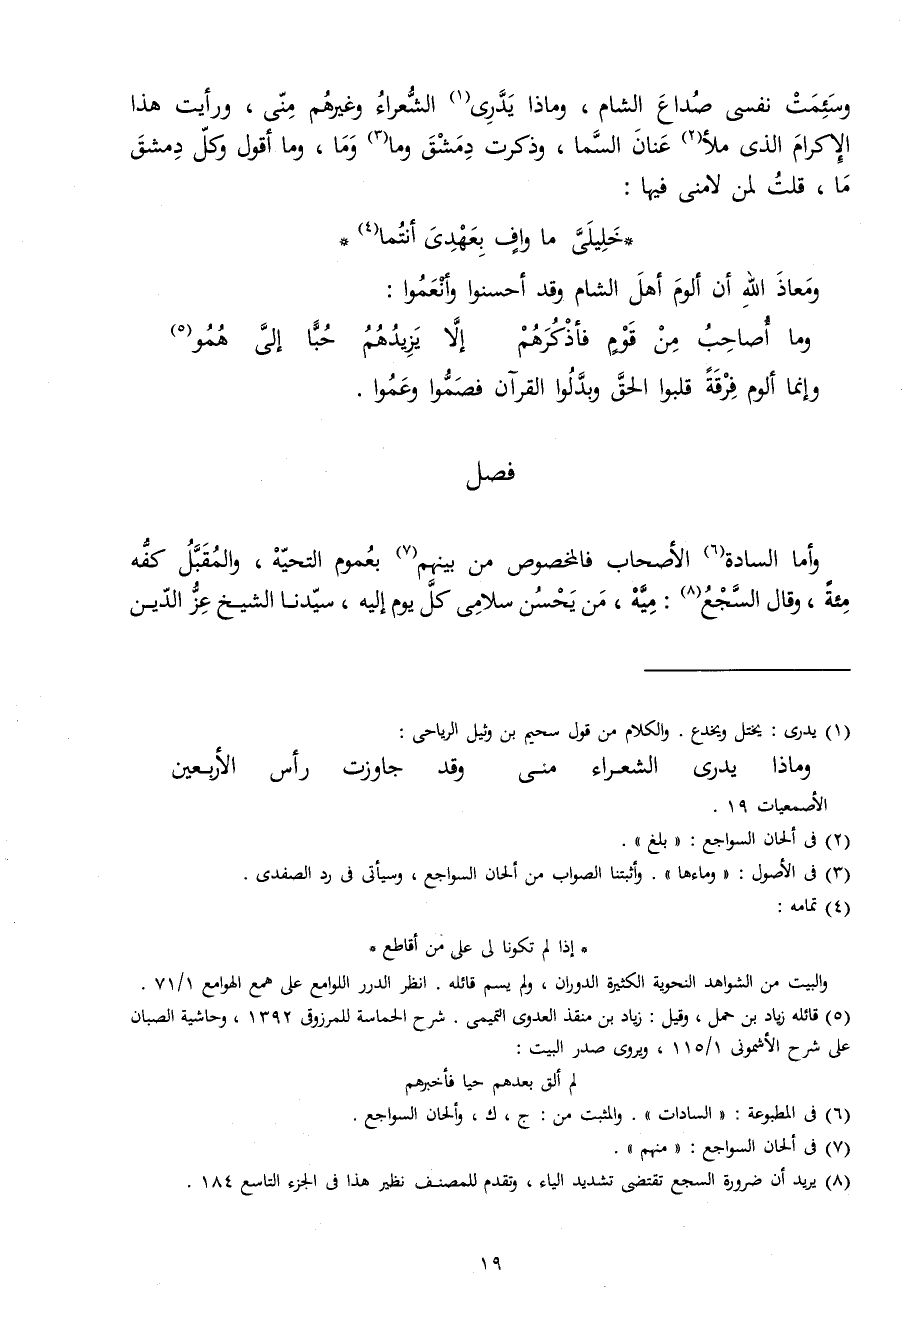 وسَئِمَتْ نفسى صُداعَ الشام ، وماذا يَدَّرِى(١) الشُّعراءُ وغيرهُم مِنّى ، ورأيت هذا
الإكرامَ الذى ملأ(٢) عَنانَ السَّما ، وذكرت دِمَشْقَ وما(٣) وَمَا ، وما أقول وكلّ دِمشقَ
مَا ، قلتُ لمن لامنى فيها :
*خَلِيلَىَّ ما وافٍ بِعَهْدِىَ أنتُما(٤) *
ومَعاذَ اللهِ أن ألومَ أهلَ الشام وقد أحسنوا وأنْعَمُوا :
وما أُصاحِبُ مِنْ قَوْمٍ فأذْكُرَهُمْ إلَّا يَزِيدُهُمُ حُبًّا إلىَّ هُمُو(٥)
وإنما ألوم فِرْقَةً قلبوا الحقَّ وبدَّلُوا القرآن فصَمُّوا وعَمُوا .
فصل
وأما السادة(٦) الأصحاب فالمخصوص من بينهم(٧) بعُموم التحيّهْ ، والمُقَبَّلُ كفُّه
مِئةً ، وقال السَّجْعُ(٨) : مِيَّهْ ، مَن يَحْسُن سلامِى كلَّ يوم إليه ، سيّدنـا الشيـخ عِزُّ الدّيـن
(١) يدرى : يختل ويخدع . والكلام من قول سحيم بن وثيل الرياحى :
وماذا يدرى الشعـراء منـى وقد جاوزت رأس الأربـعين
الأصمعيات ١٩ .
(٢) فى ألحان السواجع : « بلغ » .
(٣) فى الأصول : « وماءها » . وأثبتنا الصواب من ألحان السواجع ، وسيأتى فى رد الصفدى .
(٤) تمامه :
* إذا لم تكونا لى على من أقاطع *
والبيت من الشواهد النحوية الكثيرة الدوران ، ولم يسم قائله . انظر الدرر اللوامع على همع الهوامع ٧١/١ .
(٥) قائله زياد بن حمل ، وقيل : زياد بن منقذ العدوى التميمى . شرح الحماسة للمرزوقى ١٣٩٢ ، وحاشية الصبان
على شرح الأشمونى ١١٥/١ ، ويروى صدر البيت :
لم ألق بعدهم حيا فأخبرهم
(٦) فى المطبوعة : « السادات » . والمثبت من : ج ، ك ، وألحان السواجع .
(٧) فى ألحان السواجع : « منهم » .
(٨) يريد أن ضرورة السجع تقتضى تشديد الياء ، وتقدم للمصنـف نظير هذا فى الجزء التاسع ١٨٤ .
١٩